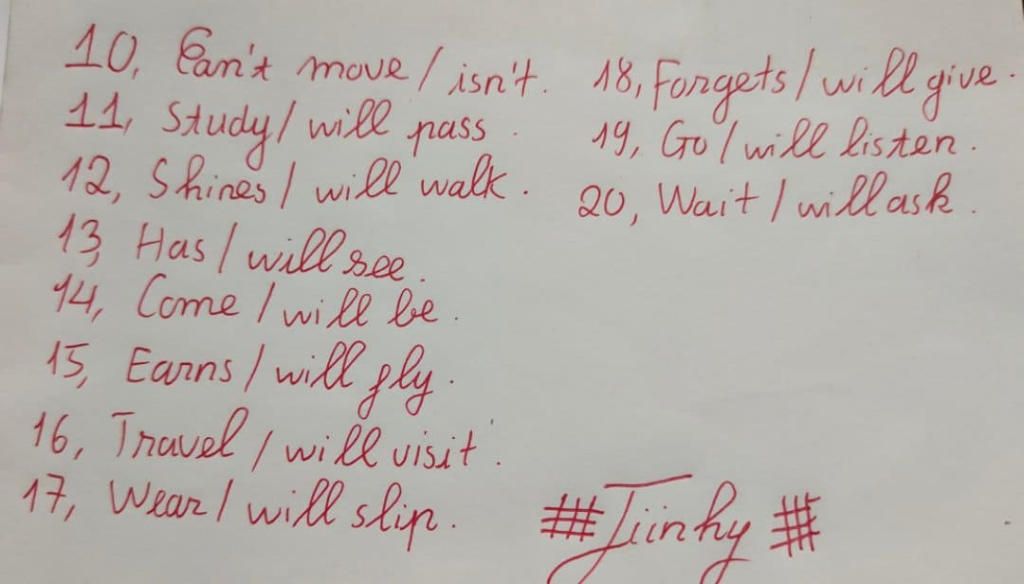 10, Can't move / isn't.
11, Study / will pass.
12, Shines / will walk.
13, Has / will see.
14, Come / will be.
15, Earns / will fly.
16, Travel / will visit.
17, Wear / will slip.
18, Forgets / will give.
19, Go / will listen.
20, Wait / will ask.
# Jiinhy #